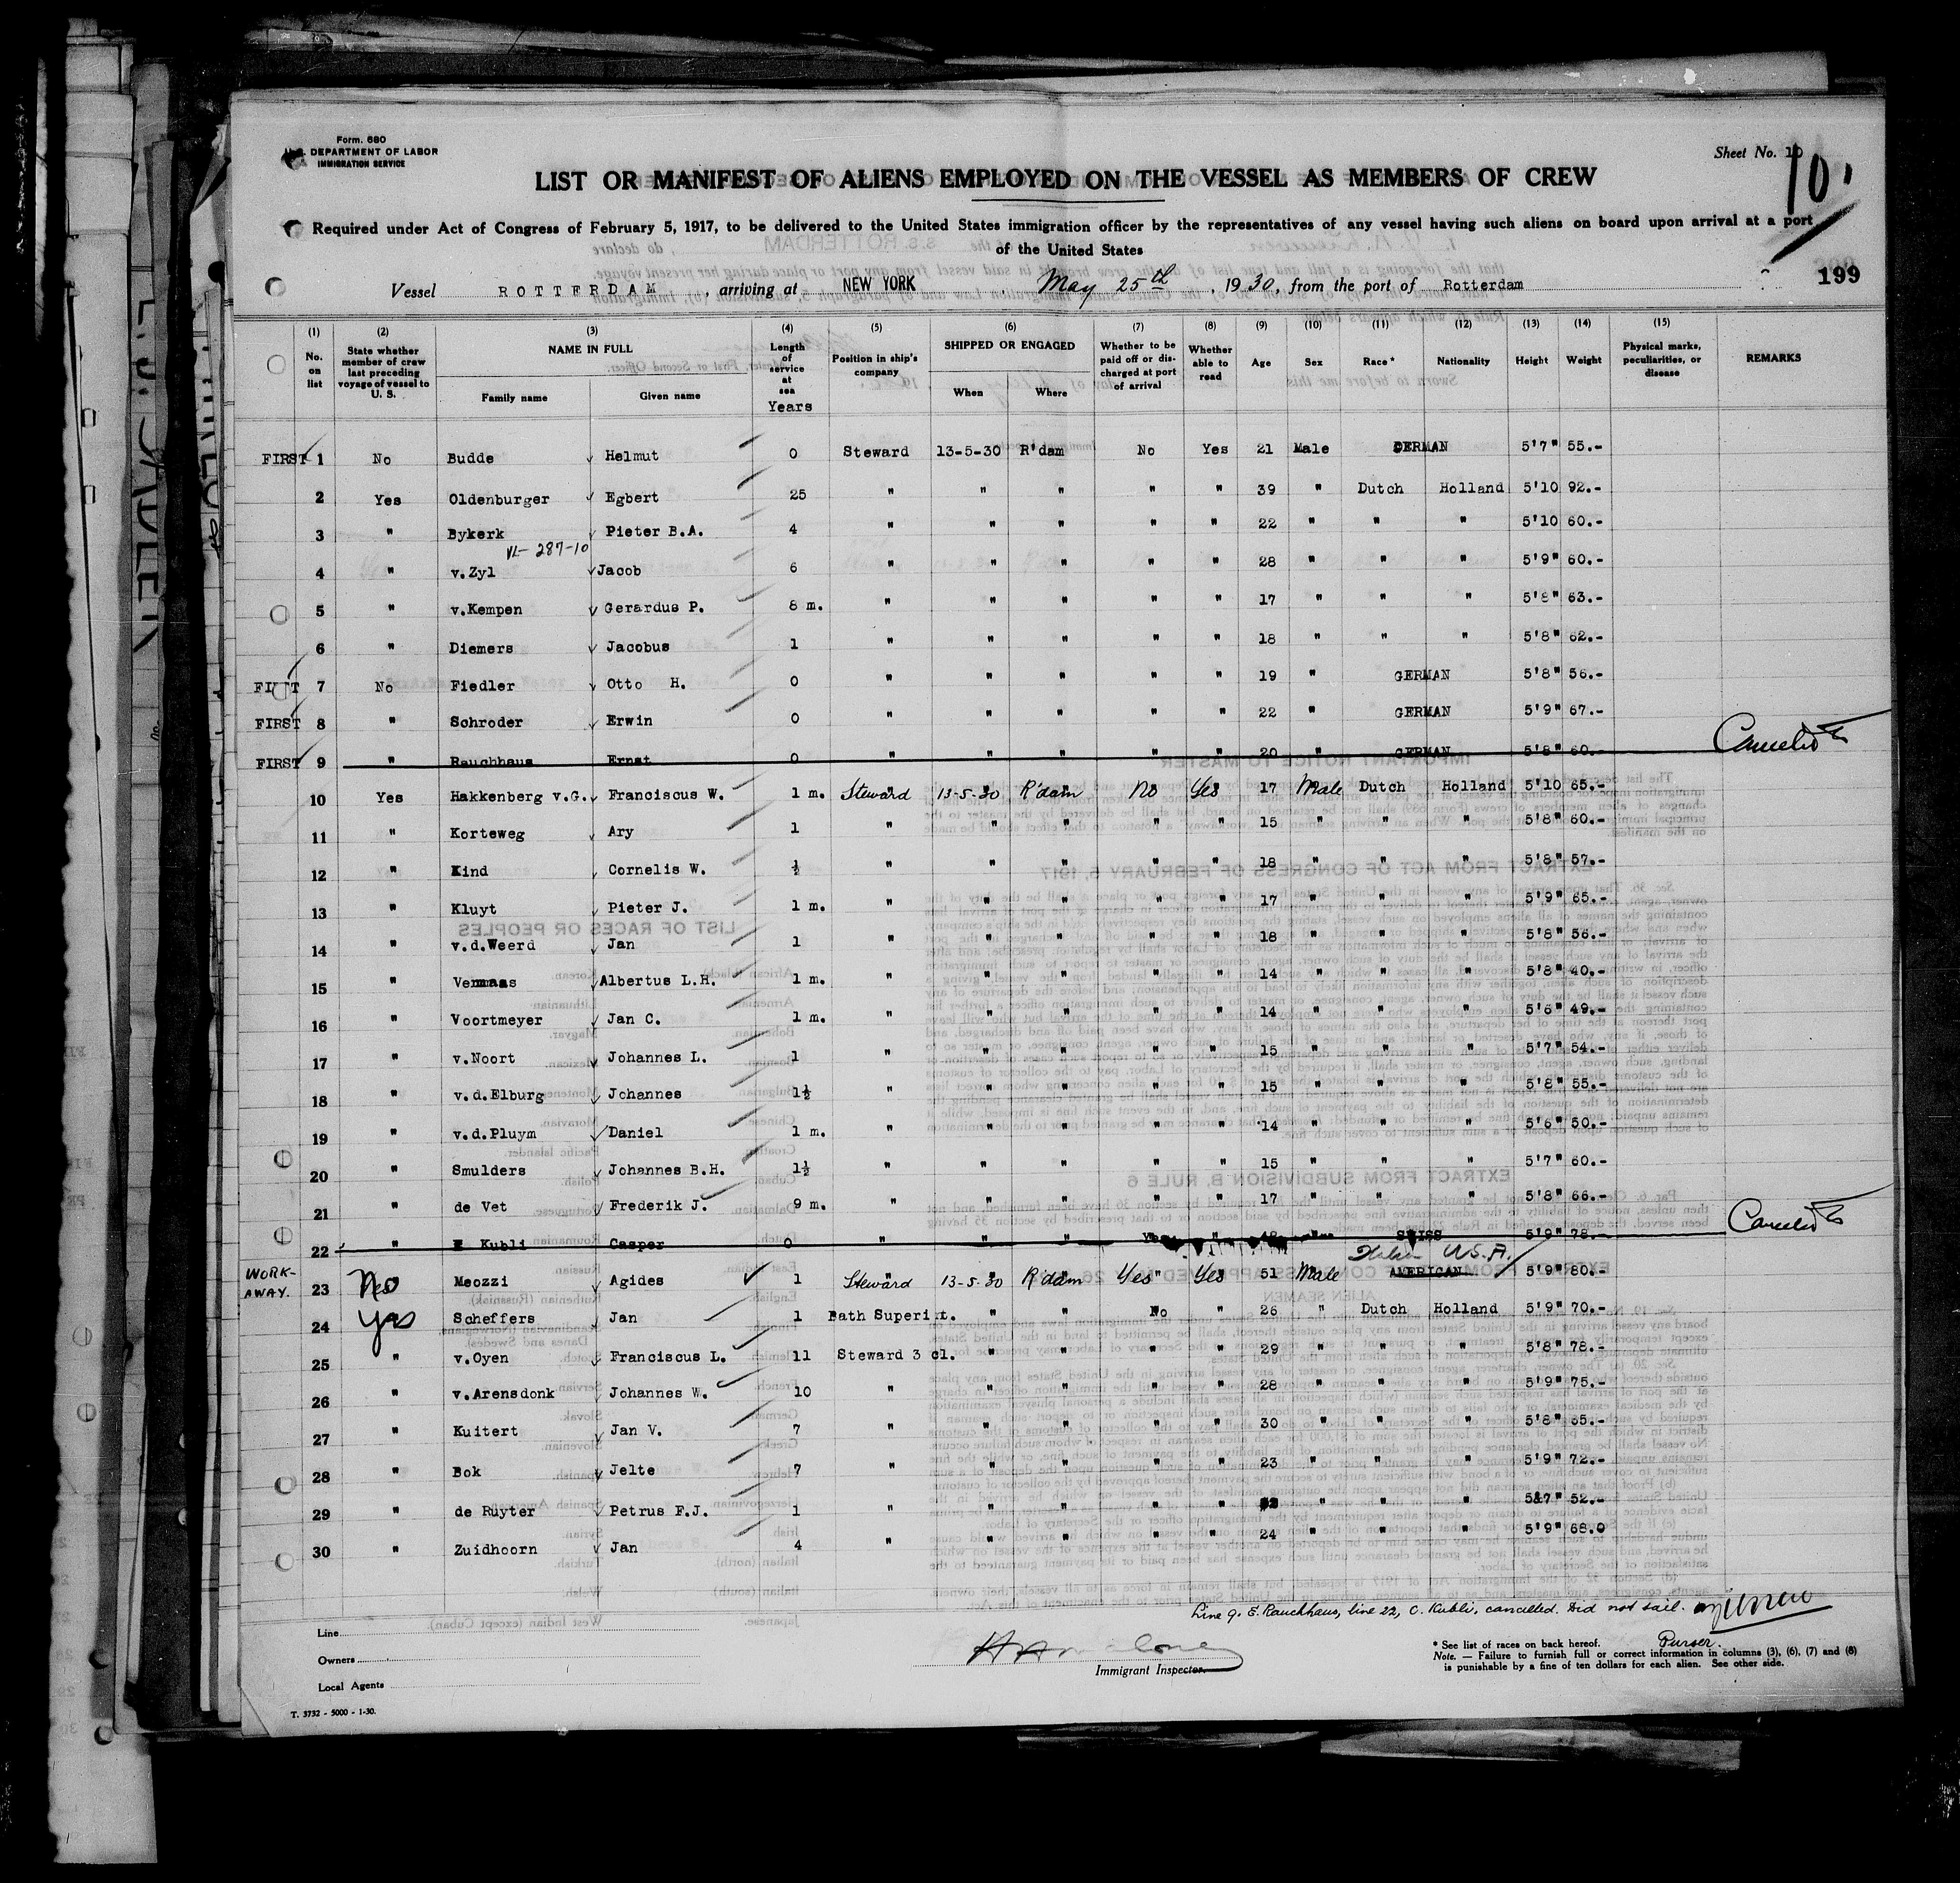 Form. 680
U.S. DEPARTMENT OF LABOR
IMMIGRATION SERVICE
Sheet No. 10
10
LIST OR MANIFEST OF ALIENS EMPLOYED ON THE VESSEL AS MEMBERS OF CREW
Required under Act of Congress of February 5, 1917, to be delivered to the United States immigration officer by the representatives of any vessel having such aliens on board upon arrival at a port
of the United States
199
Vessel ROTTERDAM, arriving at NEW YORK, May 25th, 1930, from the port of Rotterdam
(1) No. on list (2) State whether member of crew last preceding voyage of vessel to U. S. (3) NAME IN FULL Family name Given name (4) Length of service at sea Years (5) Position in ship's company (6) SHIPPED OR ENGAGED When Where (7) Whether to be paid off or discharged at port of arrival (8) Whether able to read (9) Age (10) Sex (11) Race* (12) Nationality (13) Height (14) Weight (15) Physical marks, peculiarities, or disease REMARKS
FIRST 1 No Budde Helmut 0 Steward 13-5-30 R'dam No Yes 21 Male GERMAN 5'7" 55.-
2 Yes Oldenburger Egbert 25 " " " " " 39 " Dutch Holland 5'10 92.-
3 " Bykerk Pieter B.A. 4 " " " " " 22 " " " 5'10 60.-
VL- 287-10
4 " v.Zyl Jacob 6 " " " " " 28 " " " 5'9" 60.-
5 " v.Kempen Gerardus P. 8 m. " " " " " 17 " " " 5'8" 63.-
6 " Diemers Jacobus 1 " " " " " 18 " " " 5'8" 62.-
FIRST 7 No Fiedler Otto H. 0 " " " " " 19 " GERMAN 5'8" 56.-
FIRST 8 " Schroder Erwin 0 " " " " " 22 " GERMAN 5'9" 67.-
FIRST 9 " Rauchhaus Ernst 0 " " " " " 20 " GERMAN 5'8" 60.- Canceled
10 Yes Hakkenberg v.G. Franciscus W. 1 m. Steward 13-5-30 R'dam No Yes 17 Male Dutch Holland 5'10 65.-
11 " Korteweg Ary 1 " " " " " 15 " " " 5'8" 60.-
12 " Kind Cornelis W. ½ " " " " " 18 " " " 5'8" 57.-
13 " Kluyt Pieter J. 1 m. " " " " " 17 " " " 5'9" 65.-
14 " v.d.Weerd Jan 1 " " " " " 18 " " " 5'8" 56.-
15 " Vermaas Albertus L.H. 1 m. " " " " " 14 " " " 5'8" 40.-
16 " Voortmeyer Jan C. 1 m. " " " " " 14 " " " 5'6" 49.-
17 " v.Noort Johannes L. 1 " " " " " 15 " " " 5'7" 54.-
18 " v.d.Elburg Johannes 1½ " " " " " 15 " " " 5'8" 55.-
19 " v.d.Pluym Daniel 1 m. " " " " " 14 " " " 5'6" 50.-
20 " Smulders Johannes B.H. 1½ " " " " " 15 " " " 5'7" 60.-
21 " de Vet Frederik J. 9 m. " " " " " 17 " " " 5'8" 66.-
22 " Kubli Casper 0 " " " Yes " " SWISS 5'9" 78.- Canceled
Italian U.S.A.
WORK-AWAY. 23 No Meozzi Agides 1 Steward 13-5-30 R'dam Yes Yes 51 Male AMERICAN 5'9" 80.-
24 Yes Scheffers Jan 1 Bath Superint. " " No " 26 " Dutch Holland 5'9" 70.-
25 " v.Oyen Franciscus L. 11 Steward 3 cl. " " " " 29 " " " 5'8" 78.-
26 " v.Arensdonk Johannes W. 10 " " " " " 28 " " " 5'9" 75.-
27 " Kuitert Jan V. 7 " " " " " 30 " " " 5'8" 65.-
28 " Bok Jelte 7 " " " " " 23 " " " 5'9" 72.-
29 " de Ruyter Petrus F.J. 1 " " " " " " " " 5'7" 52.-
30 " Zuidhoorn Jan 4 " " " " " 24 " " " 5'9" 68.0
Line 9. E. Rauchhaus, line 22, C. Kubli, cancelled. Did not sail.
Purser.
Line
Owners
Local Agents
Immigrant Inspector.
* See list of races on back hereof.
Note. — Failure to furnish full or correct information in columns (3), (6), (7) and (8)
is punishable by a fine of ten dollars for each alien. See other side.
T. 3732 - 5000 - 1-30.